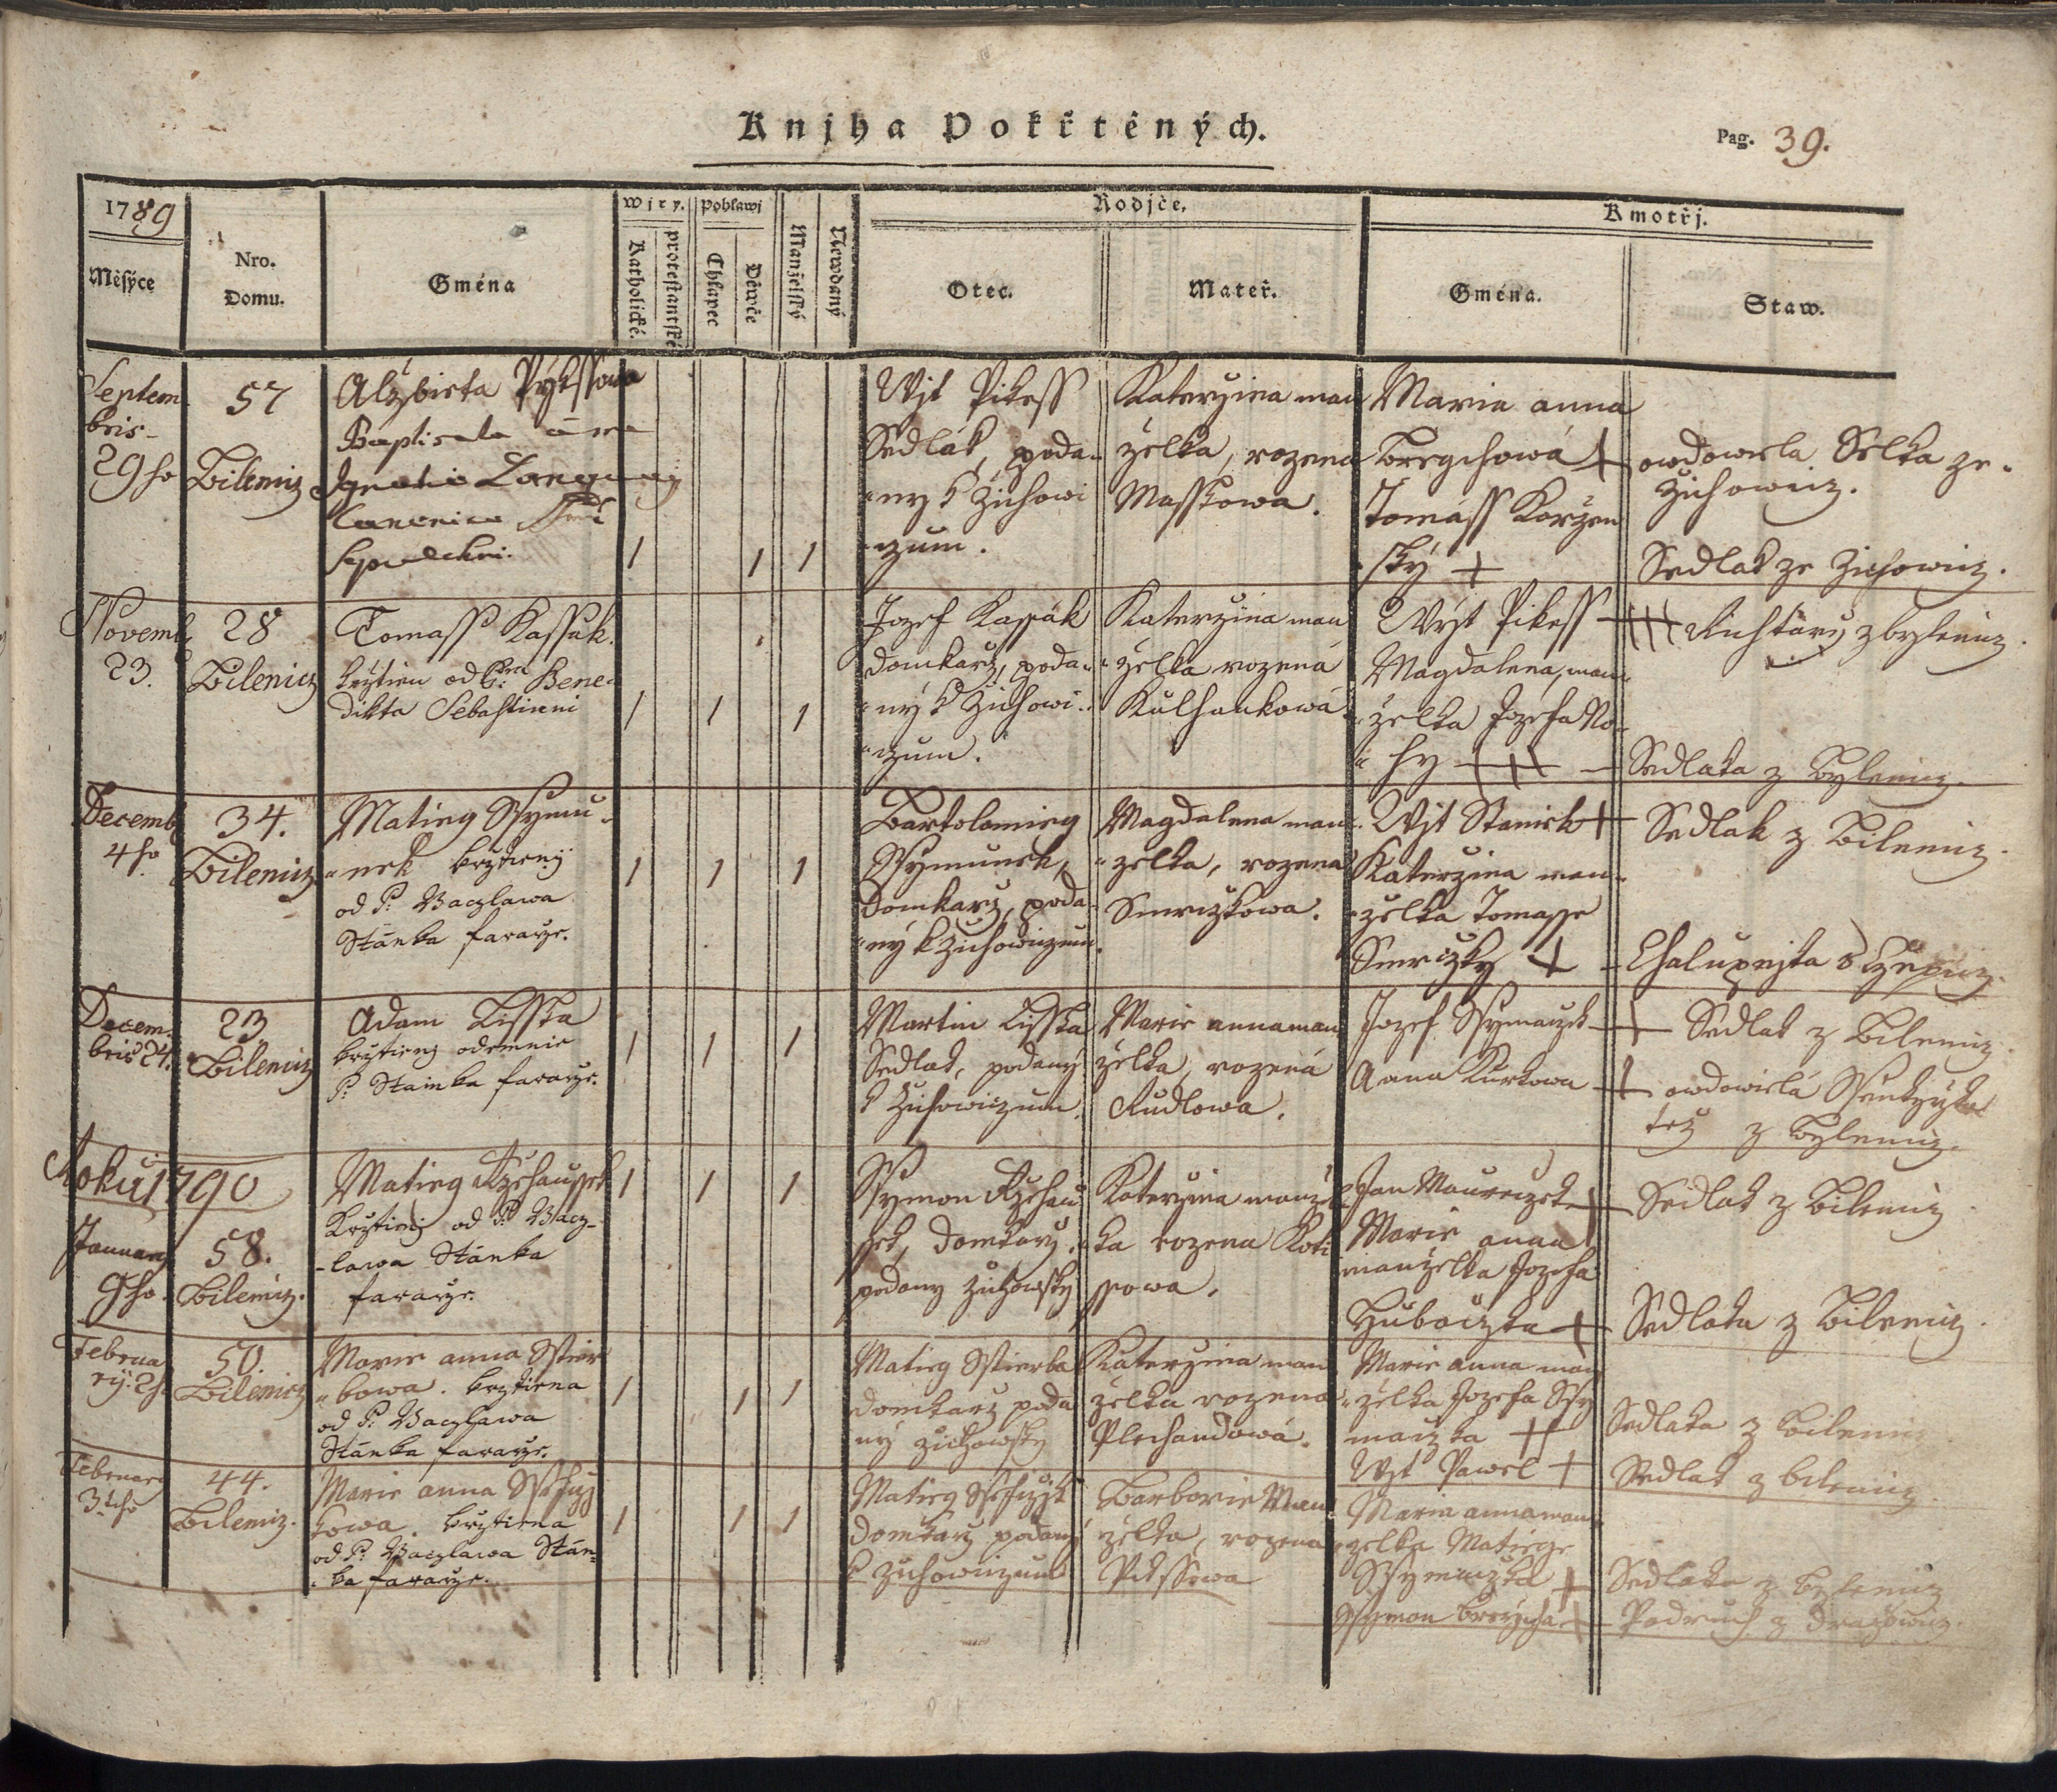 Knjha Pokřtěných.
Pag. 39.
1789
Měsýce
Nro. Domu.
Gména
Wjry.
Katholické.
protestantské
Pohlawj
Chlapec
Děwče
Manželský
Newdaný
Rodjče.
Otec.
Mateř.
Kmotřj.
Gména.
Staw.
Septem
bris
29ho
57
Bilenicz
Alžbieta Pykssowa
Baptisata a me
Ignatio
Canonico
1 1 1
Wjt Pikess
Sedlák, poda-
ny k Žichowi
czum.
Katerzina man
želka, rozena
Masskowa.
Maria anna
Breychowá +
Tomáss Korzen
ský +
owdowiela Selka ze
Žichowicz.
Sedlak ze Zichowicz.
Novemb
23.
28
Bilenicz
Tomass Kassak.
krztien od Bene-
dikta Sebastiani
1 1 1
Jozef Kassák
domkarz, poda-
ný k Žichowi-
czum.
Katerzina man
želka rozená
Kulhankowá
Wýt Pikess
Magdalena, man-
želka Jozefa No-
hy
Richtarz z bylenicz.
Sedlaka z Bylenicz.
Decemb
4ho
34.
Bilenicz
Matieg Ssymu-
nek krztieny
od P. Waczlawa
Stánka fararze.
1 1 1
Bartolomieg
Ssymunek,
Domkarz, poda-
ný k Zichowiczum.
Magdalena man-
zelka, rozena
Smrczkowa.
Wjt Stanick +
Katerzina man-
želka Tomasse
Smrczky +
Sedlak z Bilenicz.
Chalupnjka
Decem-
bris 24.
23
Bilenicz
Adam Lisska
krztieny odemnie
P. Stanka fararze.
1 1 1
Martin Lisska
Sedlak, podaný
k Zichowiczum.
Marie anna man
želka, rozená
Rudlowa.
Jozef Ssymaczek
Anna Kurkowa
Sedlak z Bilenicz
owdowielá
též z Bylenicz.
Roku 1790
Januarij
9ho.
58.
Bilenicz.
Matieg Rzehaussek
Krztieny od P. Wacz-
lawa Stánka
fararze.
1 1 1
Ssymon Rzehau
ssek, domkarz
podany Zichowsky
Katerzina manžel
ka rozena Koti
ssowa.
Jan Maureczek
Marie anna
manželka Jozefa
Huboczka +
Sedlak z Bilenicz
Sedlaka z Bilenicz.
Februa
rij. 2h
50.
Bilenicz
Marie anna Sstier
bowa. krztiena
od P. Waczlawa
Stánka fararze.
1 1 1
Matieg Sstierba
domkarz poda
ný Zichowsky
Katerzina man
želka rozena
Plechandowá.
Marie anna man
želka Jozefa Ssy
maczka
Wjt Pawel +
Sedlaka z Bilenicz
Sedlak z bilenicz
Februarij
3tiho
44.
Bilenicz.
Marie anna
kowa. krztiena
od P. Waczlawa Stán-
ka fararze.
1 1 1
Matieg
domkarz podaný
k Zichowiczum
Barborie Man
želka, rozena
Pikssowa
Maria anna man-
zelka Matiege
Ssymaczka +
Ssymon Breycha
Sedlaka z bylenicz
Podruh z Drazowicz